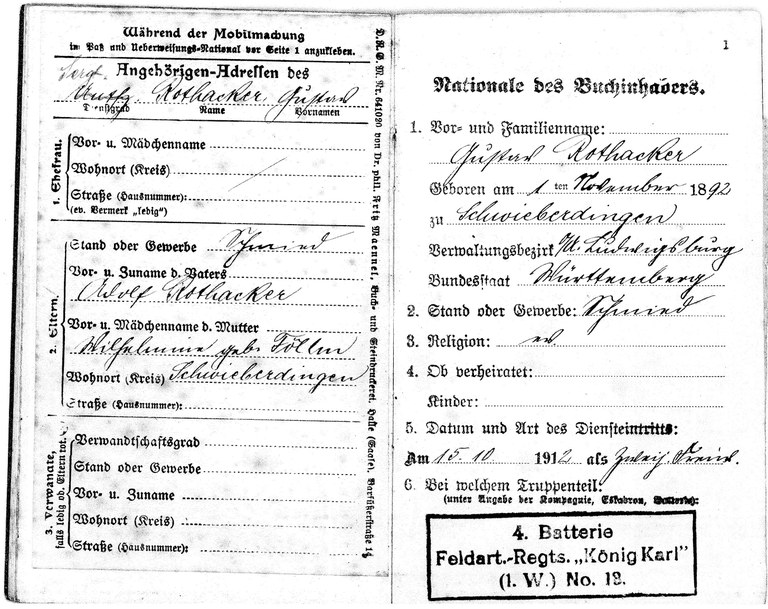 Während der Mobilmachung
im Paß und Ueberweisungs-National vor Seite 1 anzukleben.
Angehörigen-Adressen des
Sergt.
Untffz. Rothacker, Gustav
Dienstgrad Name Vornamen
1. Ehefrau.
Vor- u. Mädchenname
Wohnort (Kreis)
Straße (Hausnummer):
(ev. Vermerk „ledig")
2. Eltern.
Stand oder Gewerbe Schmied
Vor- u. Zuname d. Vaters
Adolf Rothacker
Vor- u. Mädchenname d. Mutter
Wilhelmine geb. Föllm
Wohnort (Kreis) Schwieberdingen
Straße (Hausnummer):
3. Verwandte,
falls ledig od. Eltern tot.
Verwandtschaftsgrad
Stand oder Gewerbe
Vor- u. Zuname
Wohnort (Kreis)
Straße (Hausnummer):
D. R. G. M. Nr. 641020 von Dr. phil. Fritz Maennel, Buch- und Steindruckerei, Halle (Saale), Barfüßerstraße
1
Nationale des Buchinhabers.
1. Vor- und Familienname:
Gustav Rothacker
Geboren am 1 ten November 1892
zu Schwieberdingen
Verwaltungsbezirk Ludwigsburg
Bundesstaat Württemberg
2. Stand oder Gewerbe: Schmied
3. Religion: ev
4. Ob verheiratet:
Kinder:
5. Datum und Art des Diensteintritts:
Am 15. 10 1912 als Zweij. Freiw.
6. Bei welchem Truppenteil:
(unter Angabe der Kompagnie, Eskadron, Batterie):
4. Batterie
Feldart.-Regts. „König Karl"
(1. W.) No. 13.